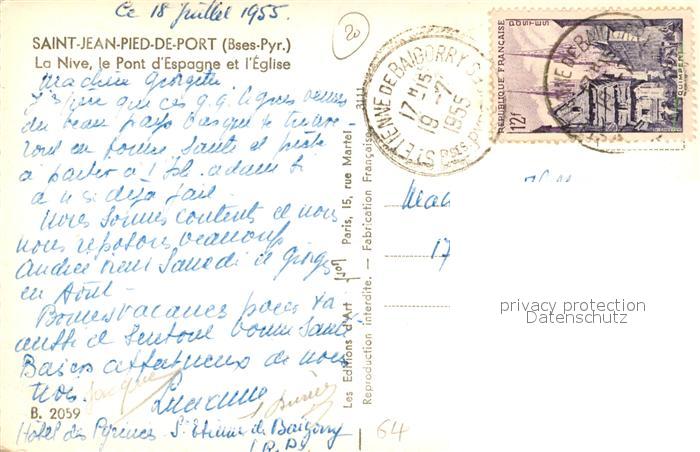 Ce 18 Juillet 1955.
20
SAINT-JEAN-PIED-DE-PORT (Bses-Pyr.)
La Nive, le Pont d'Espagne et l'Église
Ma chère Georgette
que ces q.q. lignes venues
du beau pays Basque te trouve-
ront en bonne santé et prête
à partir à l'Ile
si déjà fait.
Nous sommes contents et nous
nous reposons beaucoup
Andrée vient Samedi et Georges
en Août.
Bonnes vacances
et surtout bonne santé
Baisers affectueux de nous
trois.
Jacques
Lucienne
B. 2059
Hôtel des Pyrénées St Etienne de Baïgorry
(B.P.)
Les Editions d'Art Yvon Paris, 15, rue Martel
Reproduction interdite. - Fabrication Française
ST ETIENNE DE BAIGORRY
17 H -15
19 -7
1955
Bses PYR
POSTES
RÉPUBLIQUE FRANÇAISE
QUIMPER
12f
17
64
privacy protection
Datenschutz